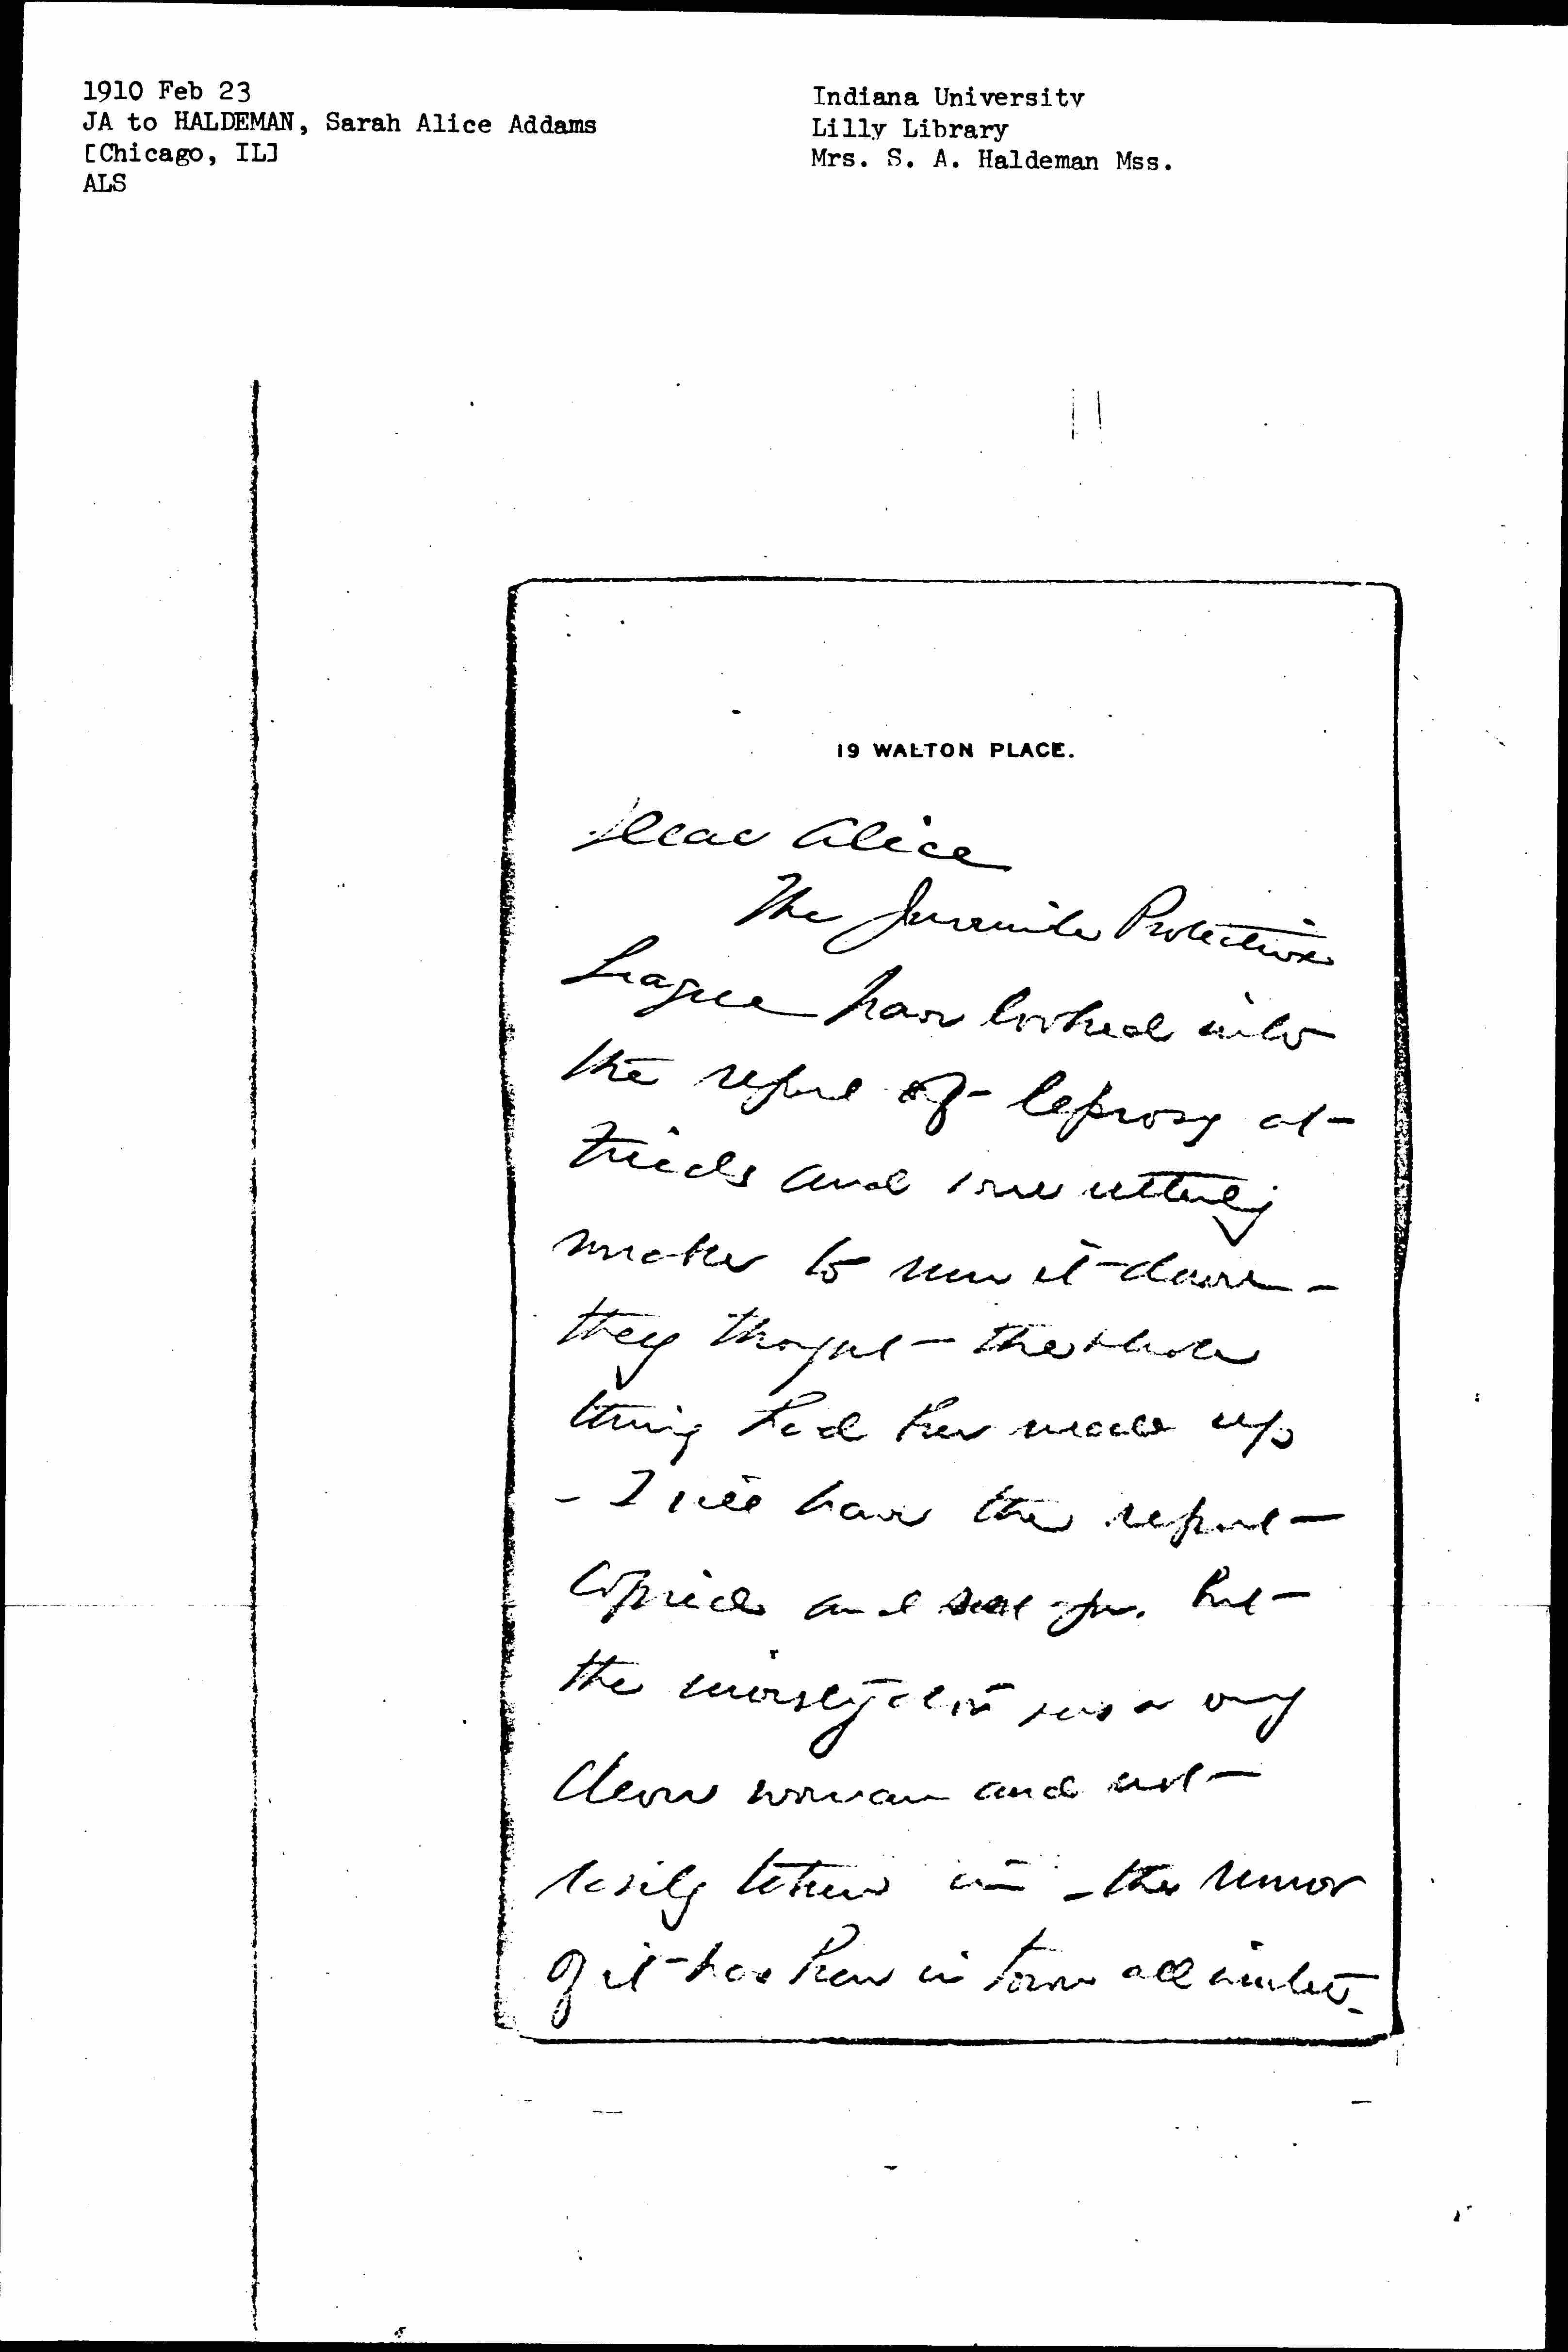 1910 Feb 23
JA to HALDEMAN, Sarah Alice Addams
[Chicago, IL]
ALS
Indiana University
Lilly Library
Mrs. S. A. Haldeman Mss.
19 WALTON PLACE.
Dear Alice
The Juvenile Protective
League have looked into
the report of leprosy at
and were utterly
unable to run it down –
they thought the whole
thing had been made up
– I will have the report
copied and sent you. But
the was a very
clever woman and not
easily taken in – the rumor
of it has been in town all winter.